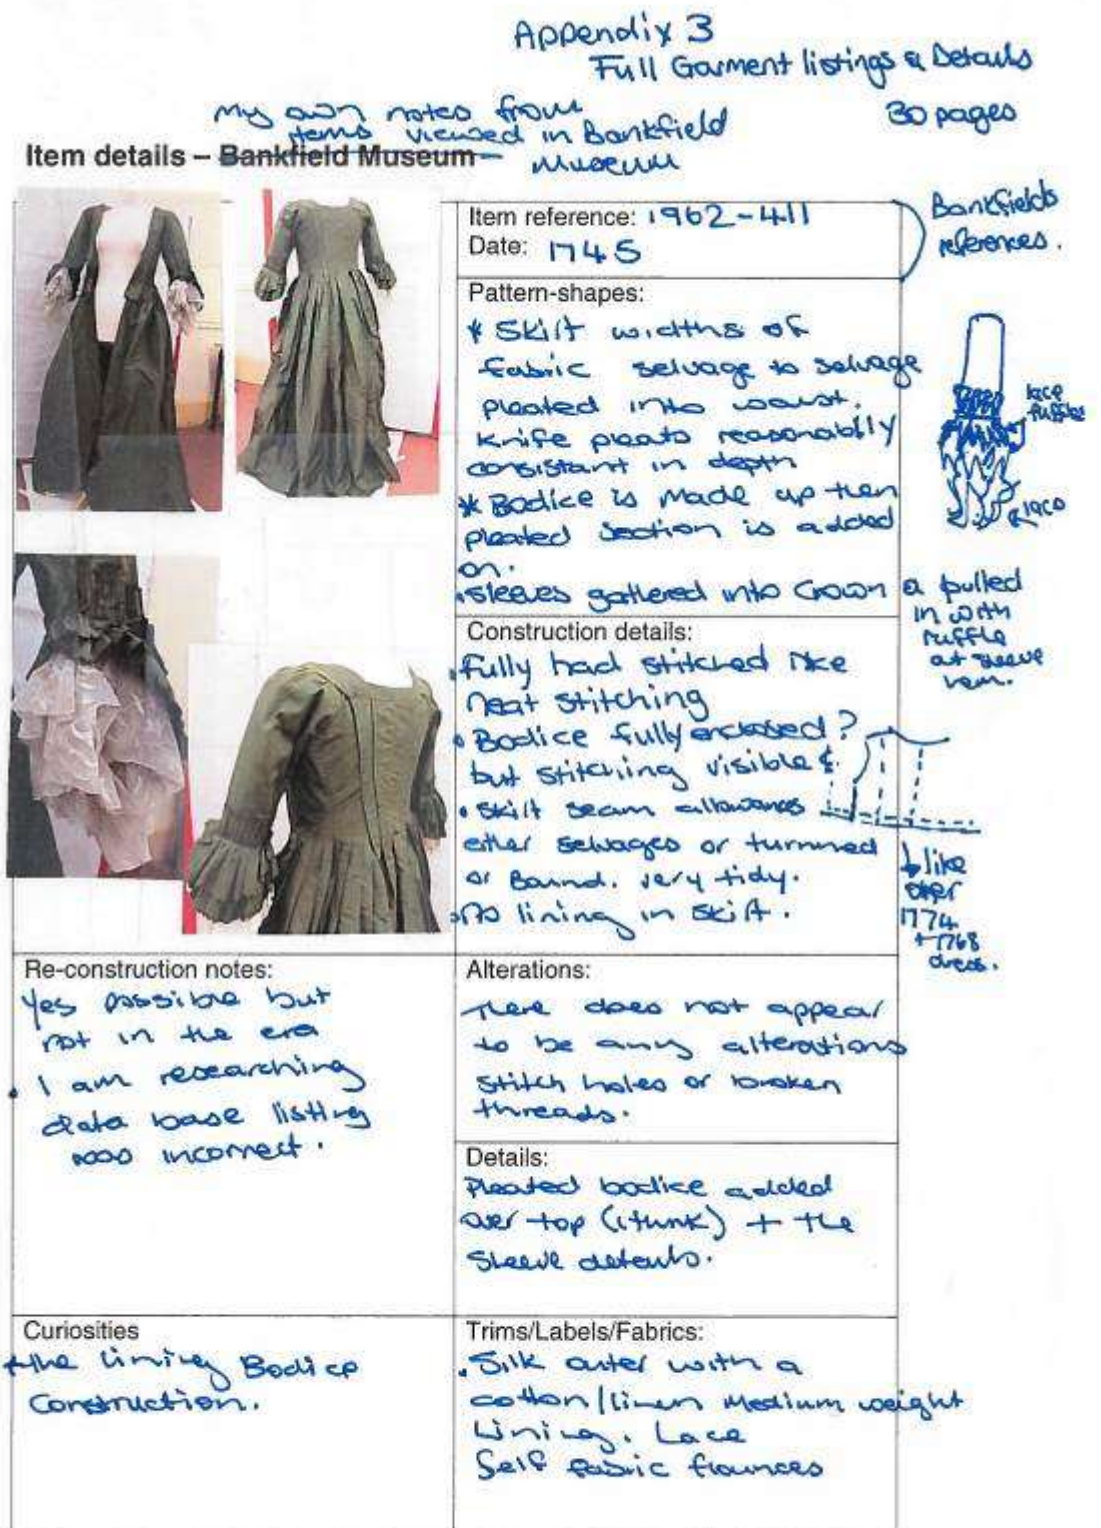 Appendix 3
Full Garment listings & Details
30 pages
My own notes from
items viewed in Bankfield
Museum
Item details – Bankfield Museum
Item reference: 1962-411
Date: 1745
Bankfields
references.
Pattern-shapes:
* Skirt widths of
fabric selvage to selvage
pleated into waist.
Knife pleats reasonably
consistant in depth
* Bodice is made up then
pleated section is added
on.
. Sleeves gathered into Crown & pulled
in with
ruffle
at sleeve
hem.
lace
ruffles
lace
Construction details:
. Fully had stitched nice
neat stitching
. Bodice fully enclosed?
but stitching visible
. Skirt seam allowances
either selvages or turnned
or Bound. very tidy.
. No lining in skirt.
like
other
1774
+ 1768
dress.
Re-construction notes:
Yes possible but
not in the era
. I am researching
data base listing
was incorrect.
Alterations:
There does not appear
to be any alterations
stitch holes or broken
threads.
Details:
Pleated bodice added
over top (I thunk) + the
Sleeve details.
Curiosities
The lining Bodice
Construction.
Trims/Labels/Fabrics:
. Silk outer with a
cotton/linen Medium weight
Lining. Lace
Self fabric flounces